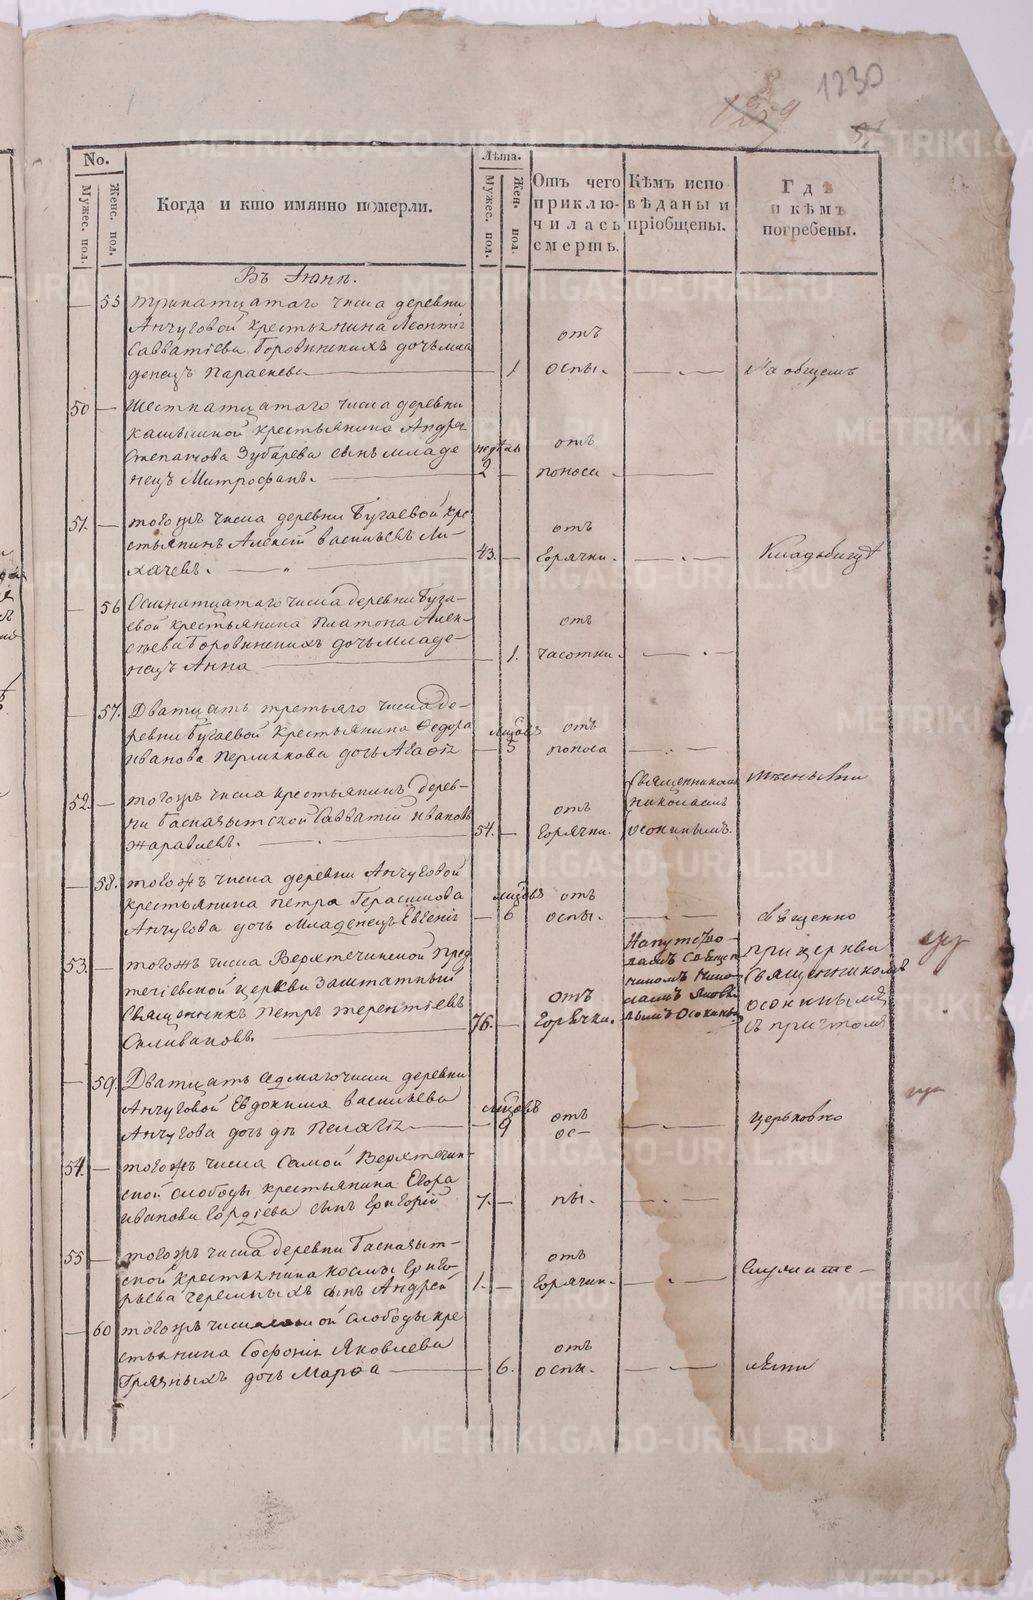 1230
1259
51
No.
Мужес. пол.
Женс. пол.
Когда и кто имянно померли.
Лѣта.
Мужес. пол.
Жен. пол.
Отъ чего
приклю-
чилась
смерть.
Кѣмъ испо
вѣданы и
пріобщены.
Гдѣ
и кѣмъ
погребены.
Въ Іюнѣ.
55 тринатцатаго числа деревни
Анчуговой крестьянина Леонтія
Савватіева Боровинскихъ дочь мла
денецъ Параскева 1 отъ оспы. На общемъ
50 Шестнатцатаго числа деревни
крестьянина Андрея
Зубарева сынъ младе
нецъ Митрофанъ. недѣль 2 отъ поноса
51. тогожъ числа деревни Бугаевой кре
стьянинъ Алексій Васильевъ Ли-
хачевъ. 43. отъ горячки. Кладбищѣ
56 Осмнатцатаго числа деревни Буга-
евой крестьянина Платона Алек-
сѣева Боровинскихъ дочь младе-
нецъ Анна 1. отъ чахотки.
57. Дватцать третьяго числа де-
ревни Бугаевой крестьянина Ѳедора
Иванова Пермякова дочь Агафія мѣсѣцовъ 5 отъ поноса
52. тогожъ числа крестьянинъ дерев-
ни Басказыкской Савватій Ивановъ
Жаравлевъ. 54. отъ горячки. Священникомъ
Николаемъ
Осокинымъ.
58. тогожъ числа деревни Анчуговой
крестьянина Петра Герасимова
Анчугова дочь младенецъ Евгенія мѣсѣцовъ 6 отъ оспы. священно
53. тогожъ числа Верхтечинской Пред
течіевской церкви заштатный
Священникъ Петръ Терентіевъ
Селивановъ. 76. отъ горячки. Напутство-
ванъ Священ
никомъ Нико
лаемъ
Осокины
при церкви
Священникомъ
Осокинымъ
съ причтомъ
59. Дватцать седмаго числа деревни
Анчуговой Евдокима Васильева
Анчугова дочь Пелагія мѣсѣцовъ 9 отъ ос- церьковно
54. тогожъ числа Самой Верхтечин-
ской слободы крестьянина Егора
Иванова Гордіева сынъ Григорій 7. пы.
55 тогожъ числа деревни Басказык-
ской крестьянина Космы Григо-
рьева Черемныхъ сынъ Андрей 1. отъ горячки. служите-
60 тогожъ числа самой слободы кре
стьянина Софонія Яковлева
Грязныхъ дочь Марѳа 6. отъ оспы. лями
METRIKI.GASO-URAL.RU